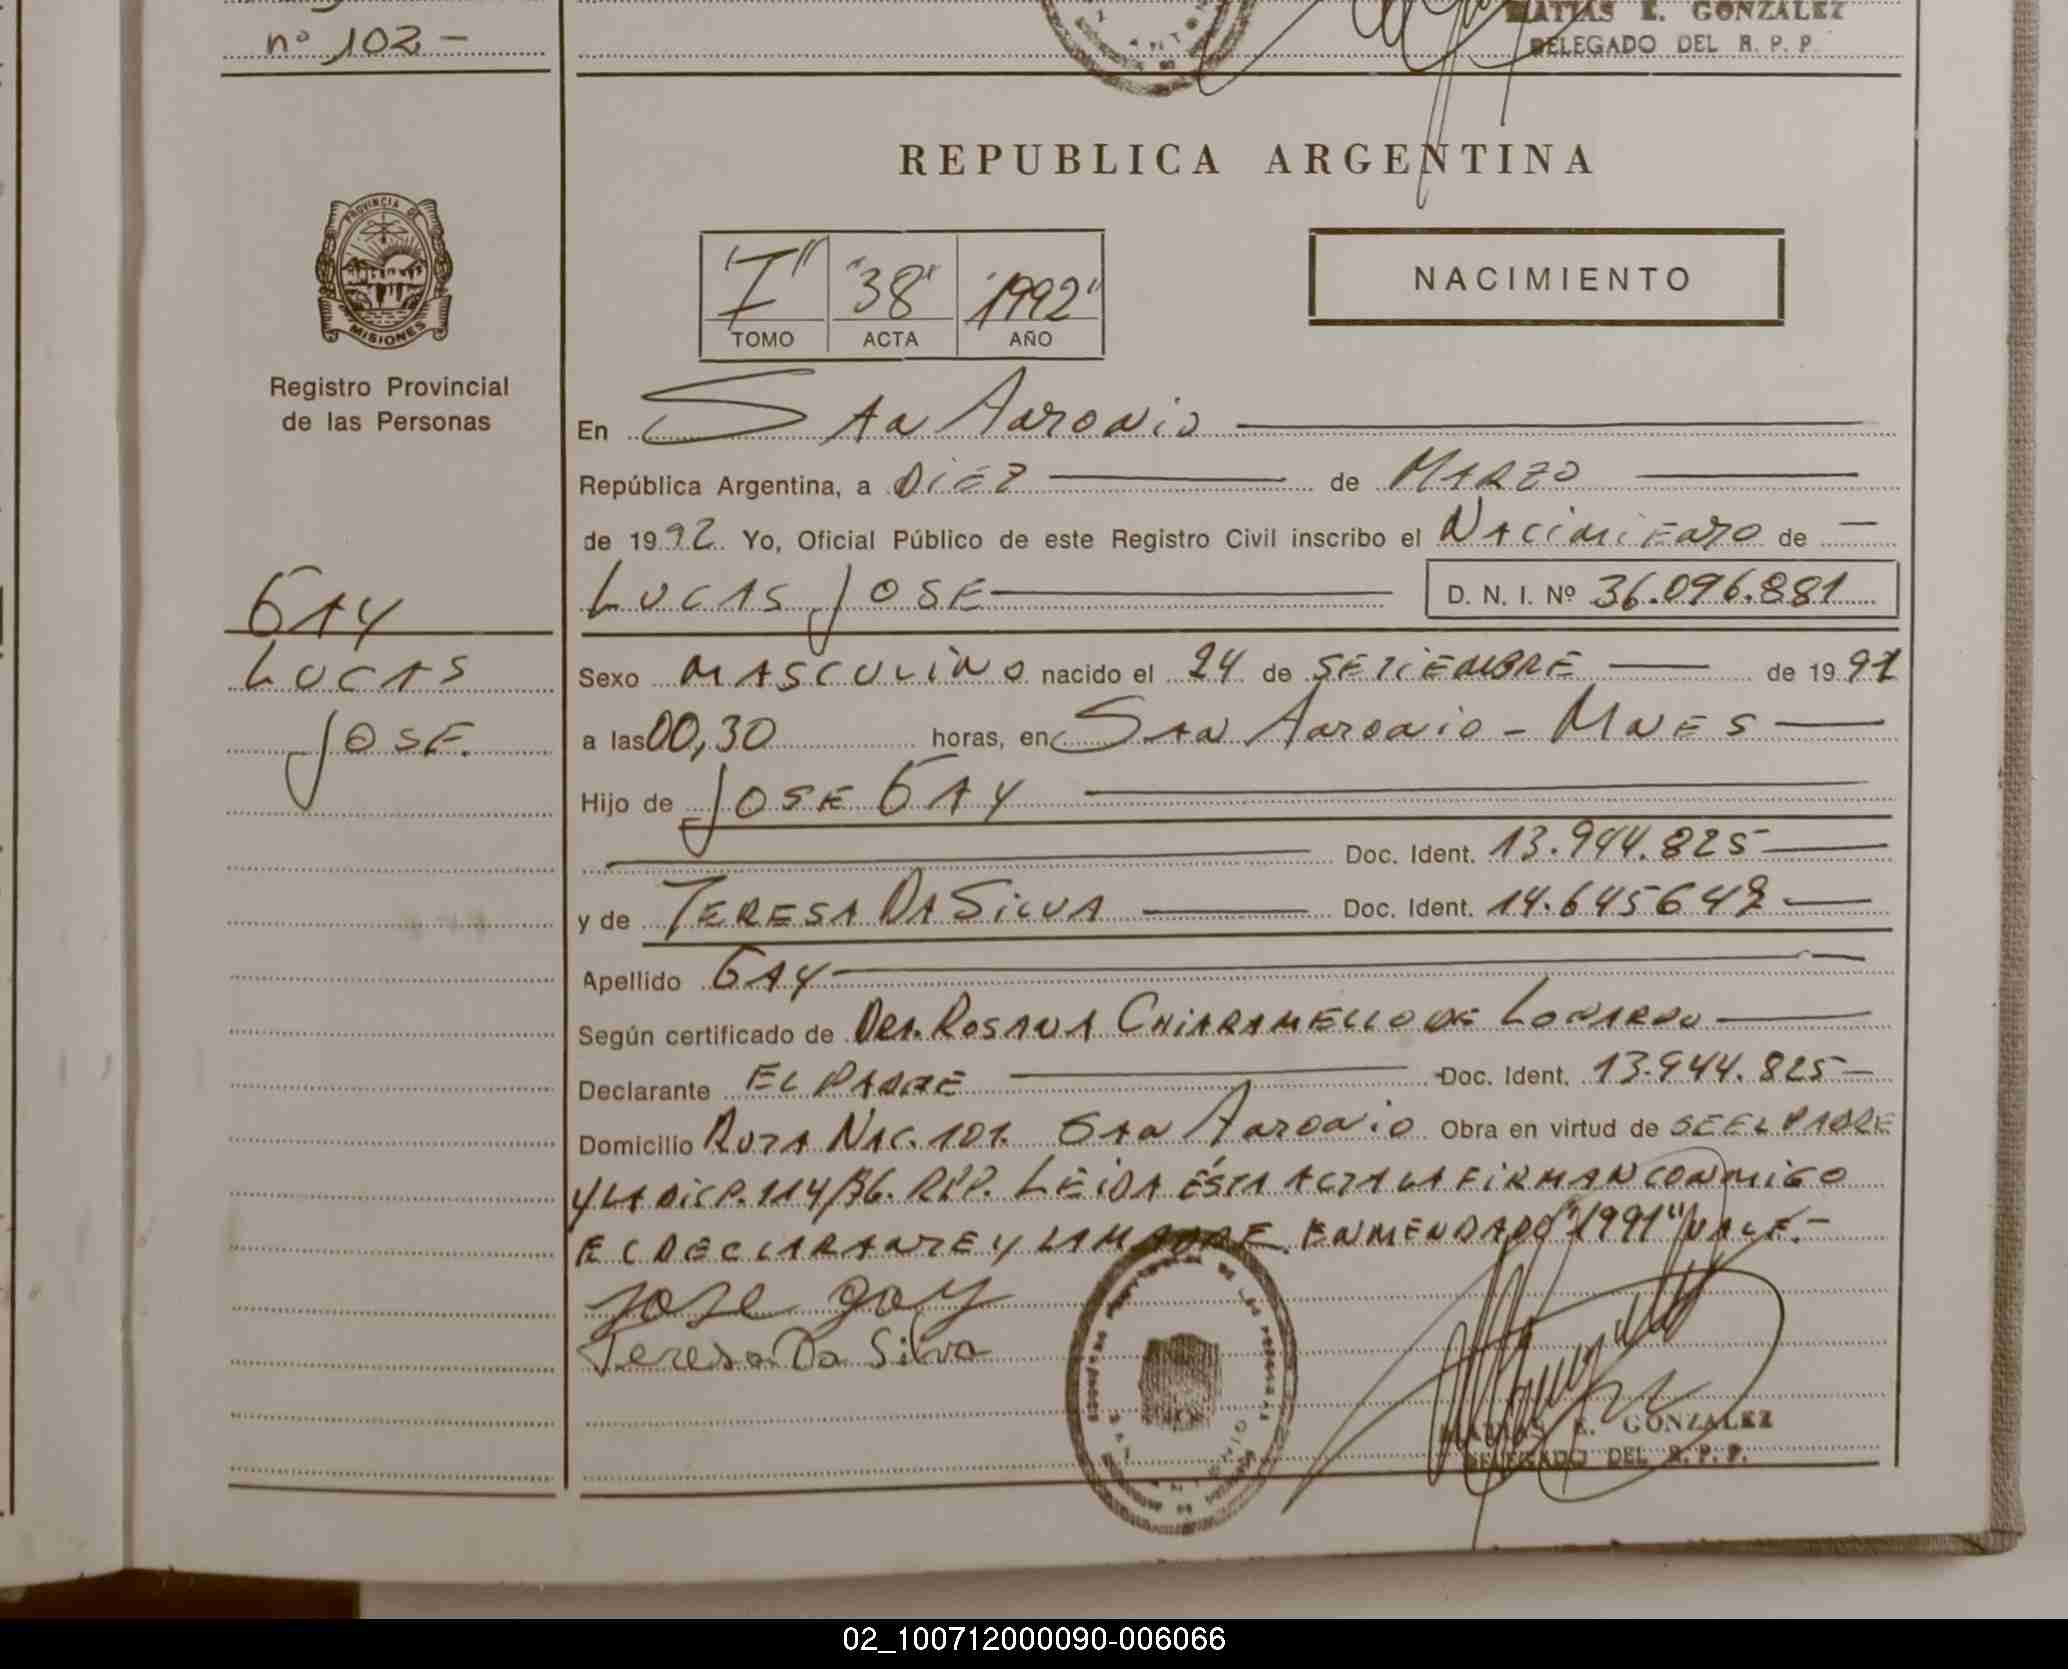 nº 102 -
MATIAS E. GONZALEZ
DELEGADO DEL R. P. P.
REPUBLICA ARGENTINA
PROVINCIA DE
MISIONES
Registro Provincial
de las Personas
"I" "38" "1992"
TOMO ACTA AÑO
NACIMIENTO
En San Antonio
República Argentina, a DIEZ de MARZO
de 1992. Yo, Oficial Público de este Registro Civil inscribo el NACIMIENTO de —
LUCAS JOSE D. N. I. Nº 36.096.881
GAY
LUCAS
JOSE.
Sexo MASCULINO nacido el 24 de SETIEMBRE de 1991
a las 00,30 horas, en San Antonio - MNES
Hijo de JOSE GAY
Doc. Ident. 13.944.825
y de TERESA DA SILVA Doc. Ident.
Apellido GAY
Según certificado de DRA. ROSANA CHIARAMELLO DE
Declarante EL PADRE Doc. Ident. 13.944.825
Domicilio RUTA NAC. 101. San Antonio Obra en virtud de SE EL PADRE
Y LA DISP. RPP. LEIDA ÉSTA ACTA LA FIRMAN CONMIGO
EL DECLARANTE Y LA MADRE. ENMENDADO "1991" VALE.-
Jose gay
Teresa Da Silva
MATIAS E. GONZALEZ
DELEGADO DEL R. P. P.
02_100712000090-006066